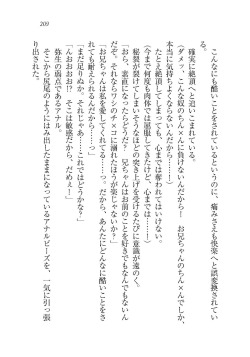 209
こんなにも酷いことをされているというのに、痛みさえも快楽へと誤変換されてい
る。
確実に絶頂へと追いこまれている。
「ダメッ、こんな奴のち×んに負けないんだから！　お兄ちゃんのち×んじゃないと、
本当に気持ちよくなんかならないんだからぁーっ！」
たとえ絶頂してしまっても、心までは奪われない。
（今まで何度も肉体では屈服してきたけど、心までは……！）
秘裂が裂けてしまいそうなほどの突き上げを受けるたびに意識が遠のく。
「おら、素直になったらどうだ？　兄ちゃんはお前のことを好きでもなんでもないん
だぞ。それならワシのち×コに溺れたほうが楽じゃないか？」
「お兄ちゃんは、私を愛してくれてるんだもん……っ。だから、あんたにどんなに酷いことをさ
れても耐えられるんだから……っ」
「まだ足りぬか。それじゃあ……これではどうかな？」
「んおおおお！？　そこは敏感だから、だめぇー！」
弥生の弱点であるアナル。
そこから尻尾のようにはみ出したままになっているアナルビーズを、一気に引っ張
り出された。